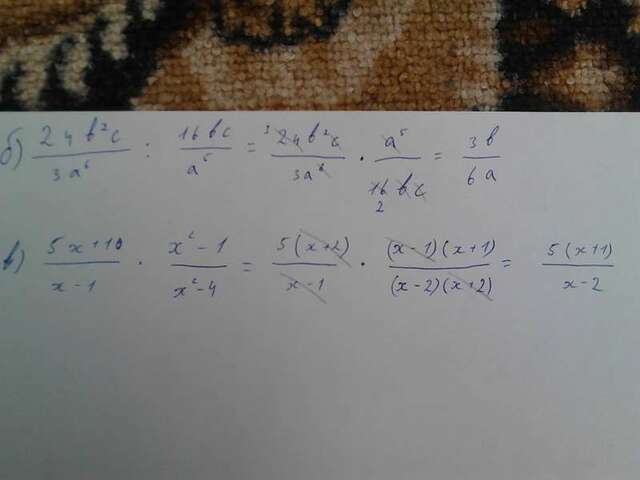 б) 24b²c/3a⁶ : 16bc/a⁵ = ³24b²c/3a⁶ · a⁵/16bc 2 = 3b/6a
в) 5x+10/x-1 · x²-1/x²-4 = 5(x+2)/x-1 · (x-1)(x+1)/(x-2)(x+2) = 5(x+1)/x-2